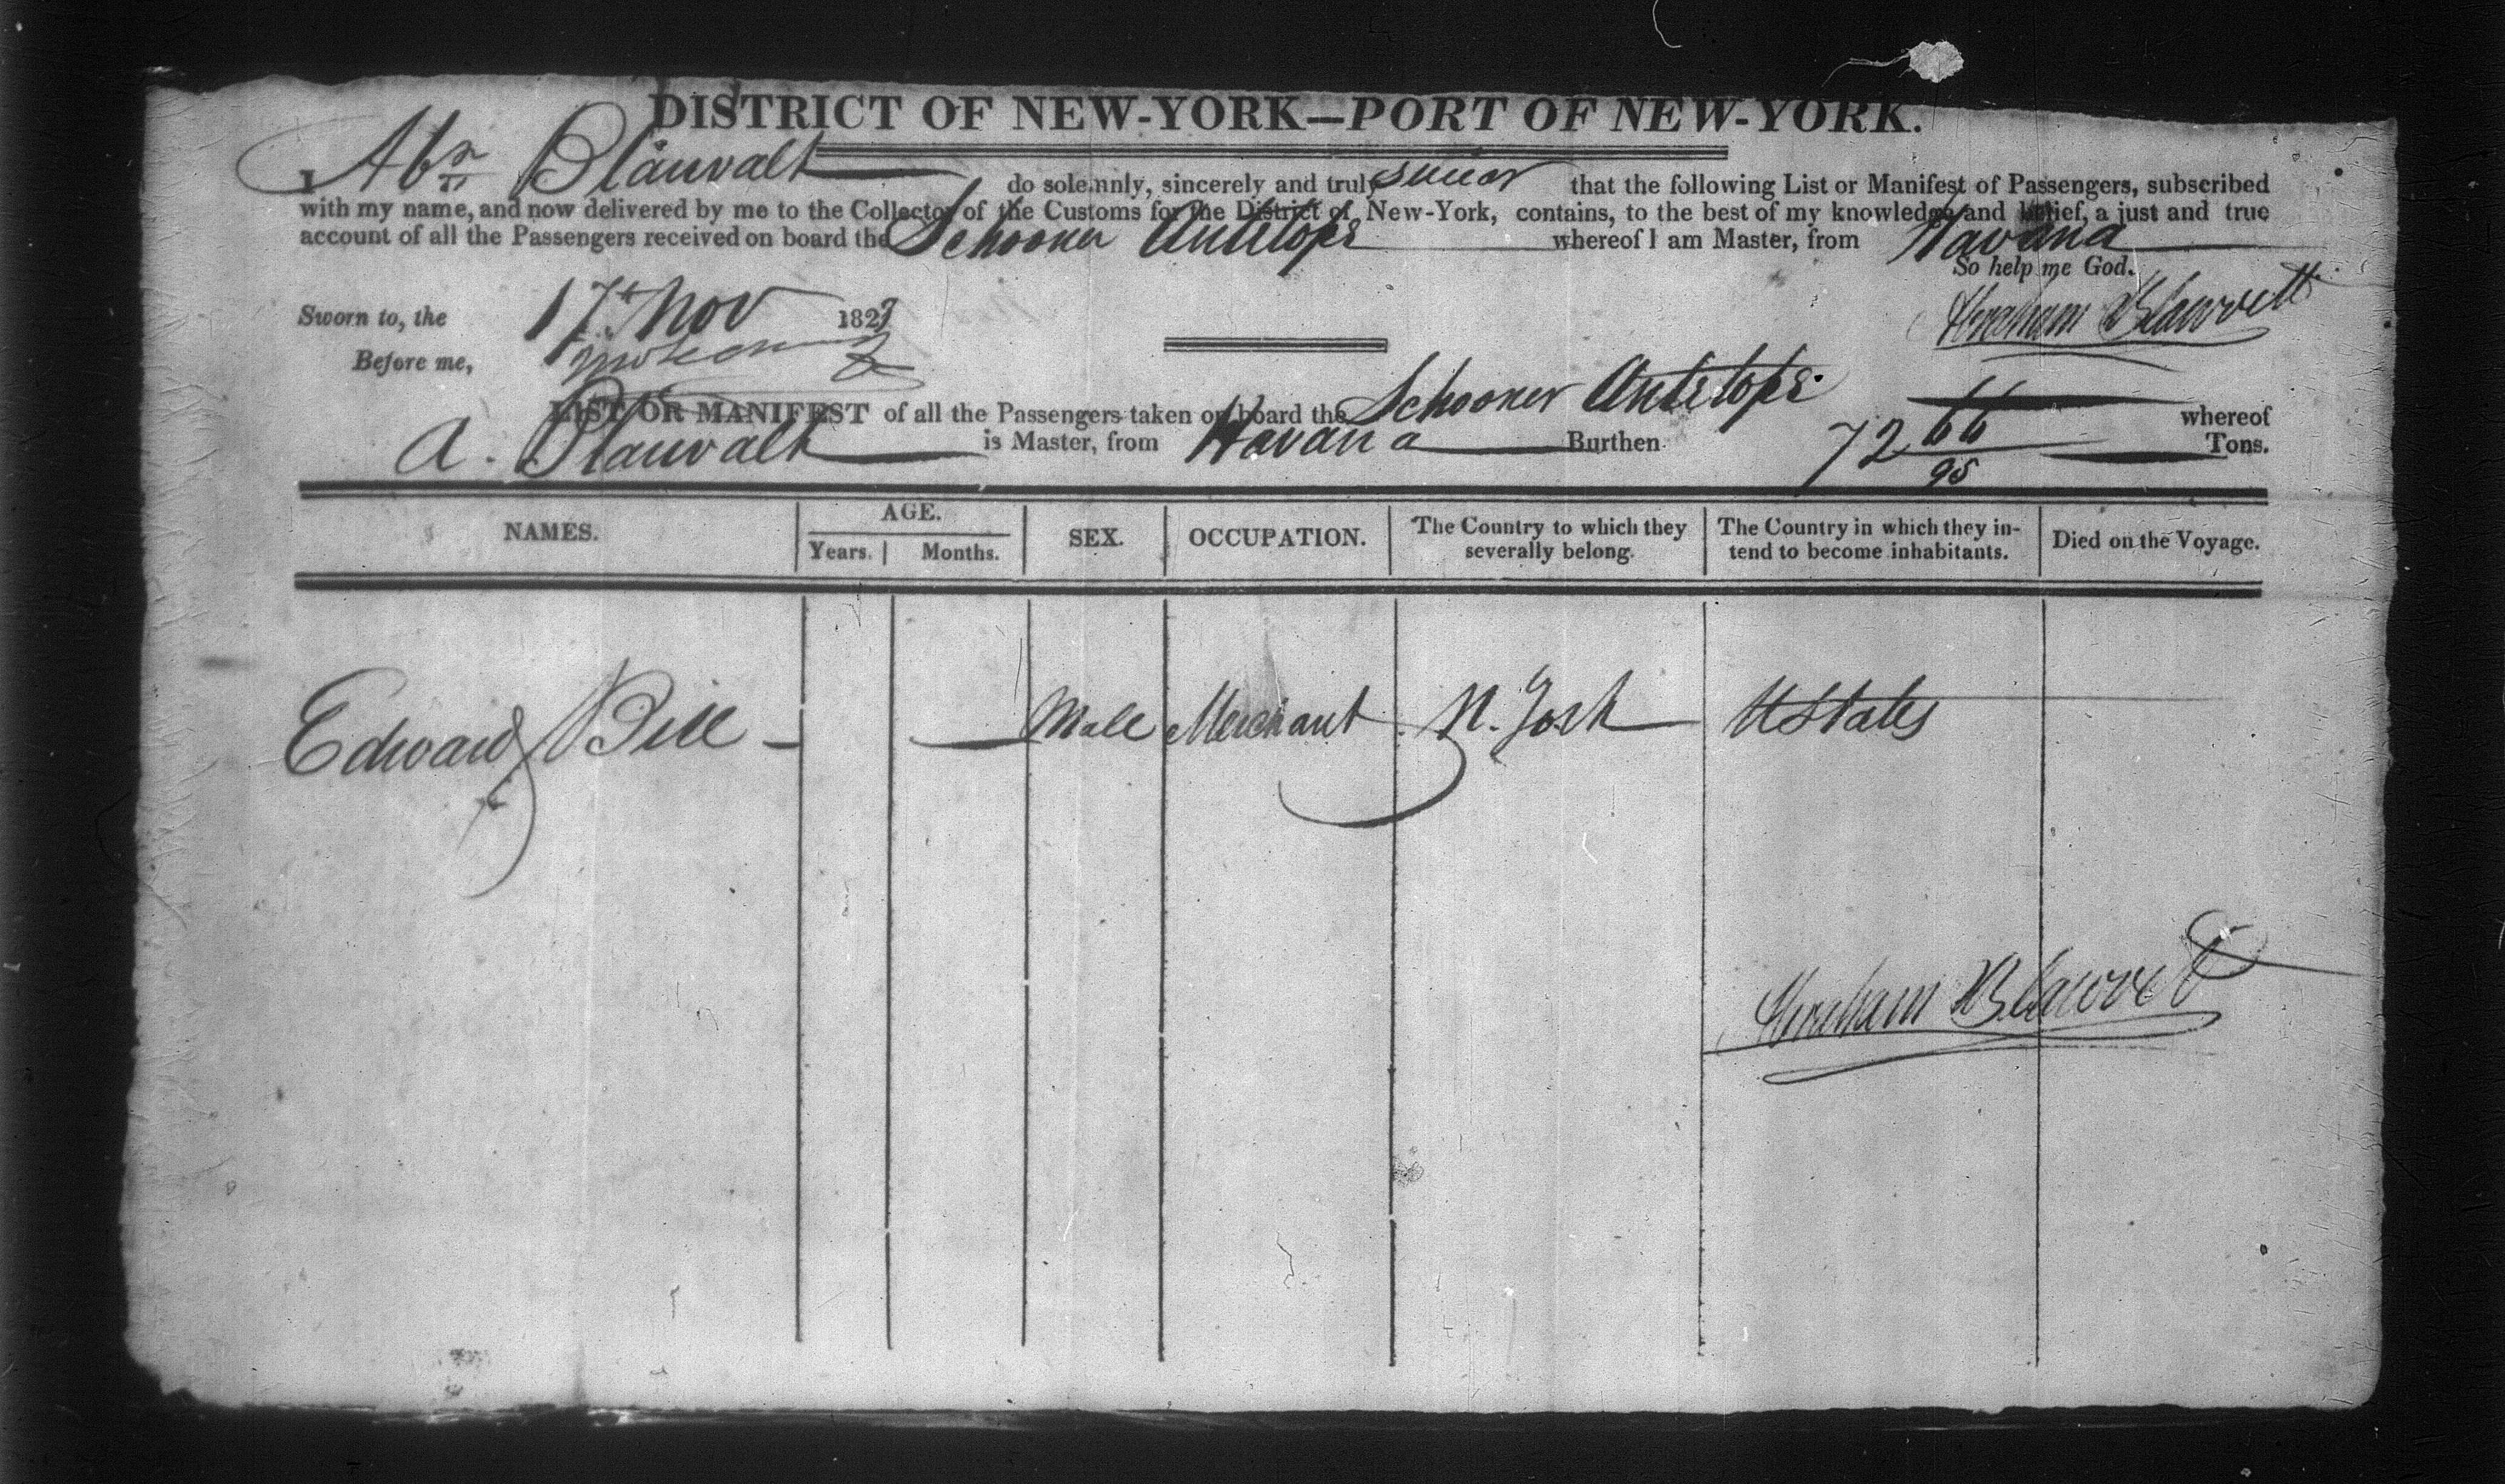 DISTRICT OF NEW-YORK—PORT OF NEW-YORK.
I Abm Blauvalt do solemnly, sincerely and truly swear that the following List or Manifest of Passengers, subscribed
with my name, and now delivered by me to the Collector of the Customs for the District of New-York, contains, to the best of my knowledge and belief, a just and true
account of all the Passengers received on board the Schooner Antelope whereof I am Master, from Havana
So help me God.
Sworn to, the 17th Nov 1823
Abraham Blauvelt
Before me,
LIST OR MANIFEST of all the Passengers taken on board the Schooner Antelope whereof
A. Blauvalt is Master, from Havana Burthen 72 66/95 Tons.
NAMES. AGE. SEX. OCCUPATION. The Country to which they severally belong. The Country in which they intend to become inhabitants. Died on the Voyage.
Years. Months.
Edward Bill Male Merchant N. York U States
Abraham Blauvelt